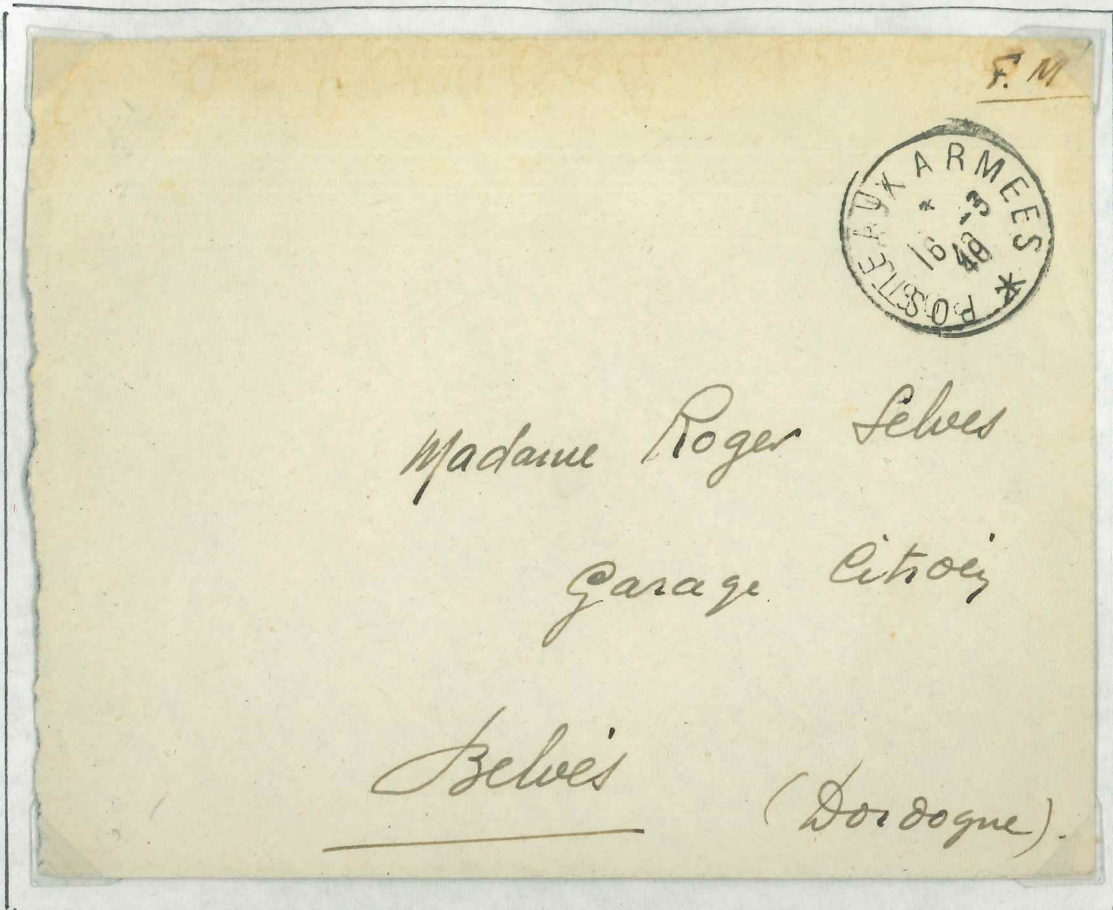 F. M
POSTE AUX ARMEES *
*
16 -3
40
Madame Roger Selves
Garage Citroën
Belvès
(Dordogne).